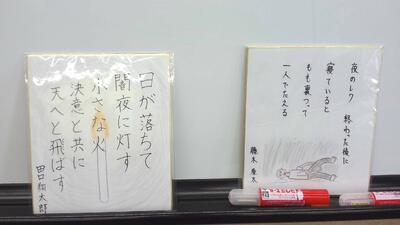 日が落ちて
闇夜に灯す
小さな火
決意と共に
天へと飛ばす
田口桓太郎
夜のレク 終わった後に
寝ていると
もも裏つって
一人でたえる
藤木 彦太